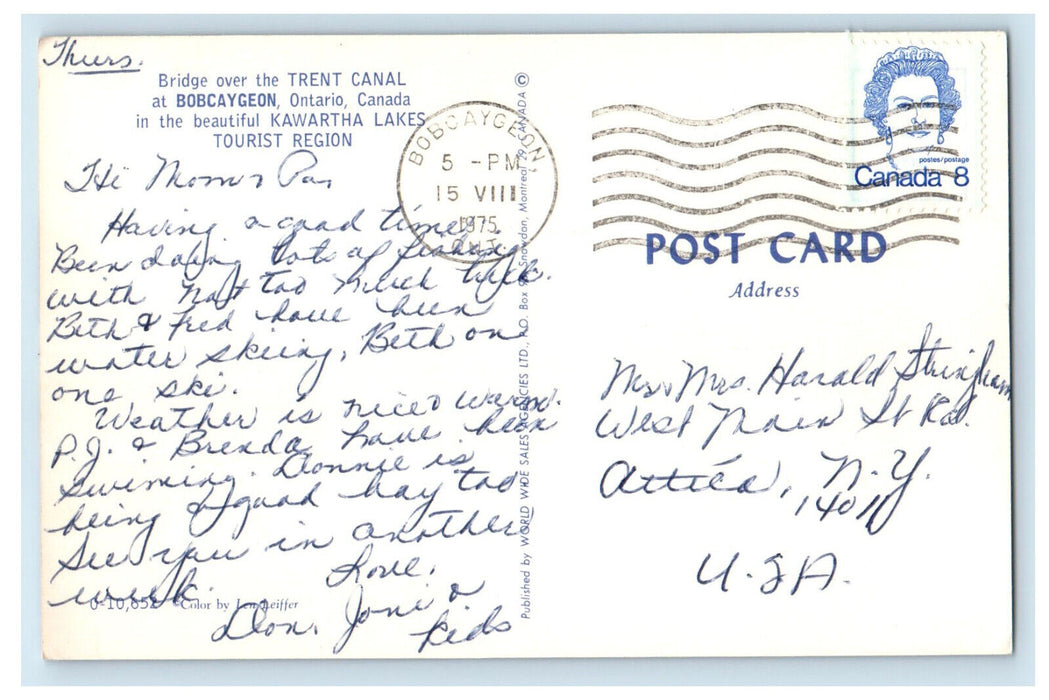 Thurs.
Bridge over the TRENT CANAL
at BOBCAYGEON, Ontario, Canada
in the beautiful KAWARTHA LAKES
TOURIST REGION
Hi Mom & Pa,
Having a good time
Been doing lots of fishing
with not too much luck.
Beth & Fred have been
water skiing, Beth on
one ski.
Weather is nice & warm.
P.J. & Brenda have been
swiming. Donnie is
being a good boy too
See you in another
week.
Love,
Don, Joni &
kids
0-10,652 Color by Len Leiffer
Published by WORLD WIDE SALES AGENCIES LTD., P.O. Box Snowdon, Montreal 29, CANADA ©
BOBCAYGEON
5 -PM
15 VIII
1975
ONT.
postes/postage
Canada 8
POST CARD
Address
Mr & Mrs. Harald Stringham
West Main St Rd.
Attica, N.Y.
14011
U.S.A.